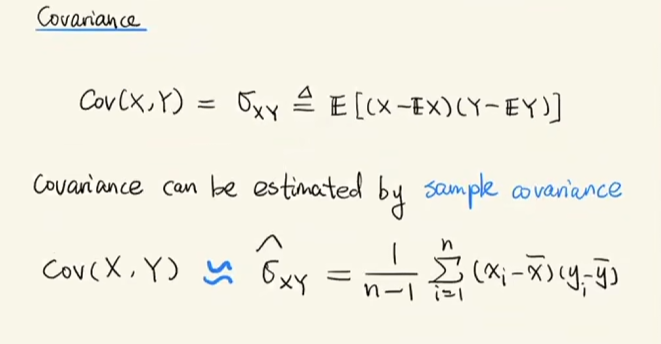 Covariance
Cov(X,Y) = σ_XY ≜ 𝔼[(X-𝔼X)(Y-𝔼Y)]
Covariance can be estimated by sample covariance
Cov(X,Y) ≈ σ̂_XY = \frac{1}{n-1} \sum_{i=1}^{n} (x_i-x̄)(y_i-ȳ)